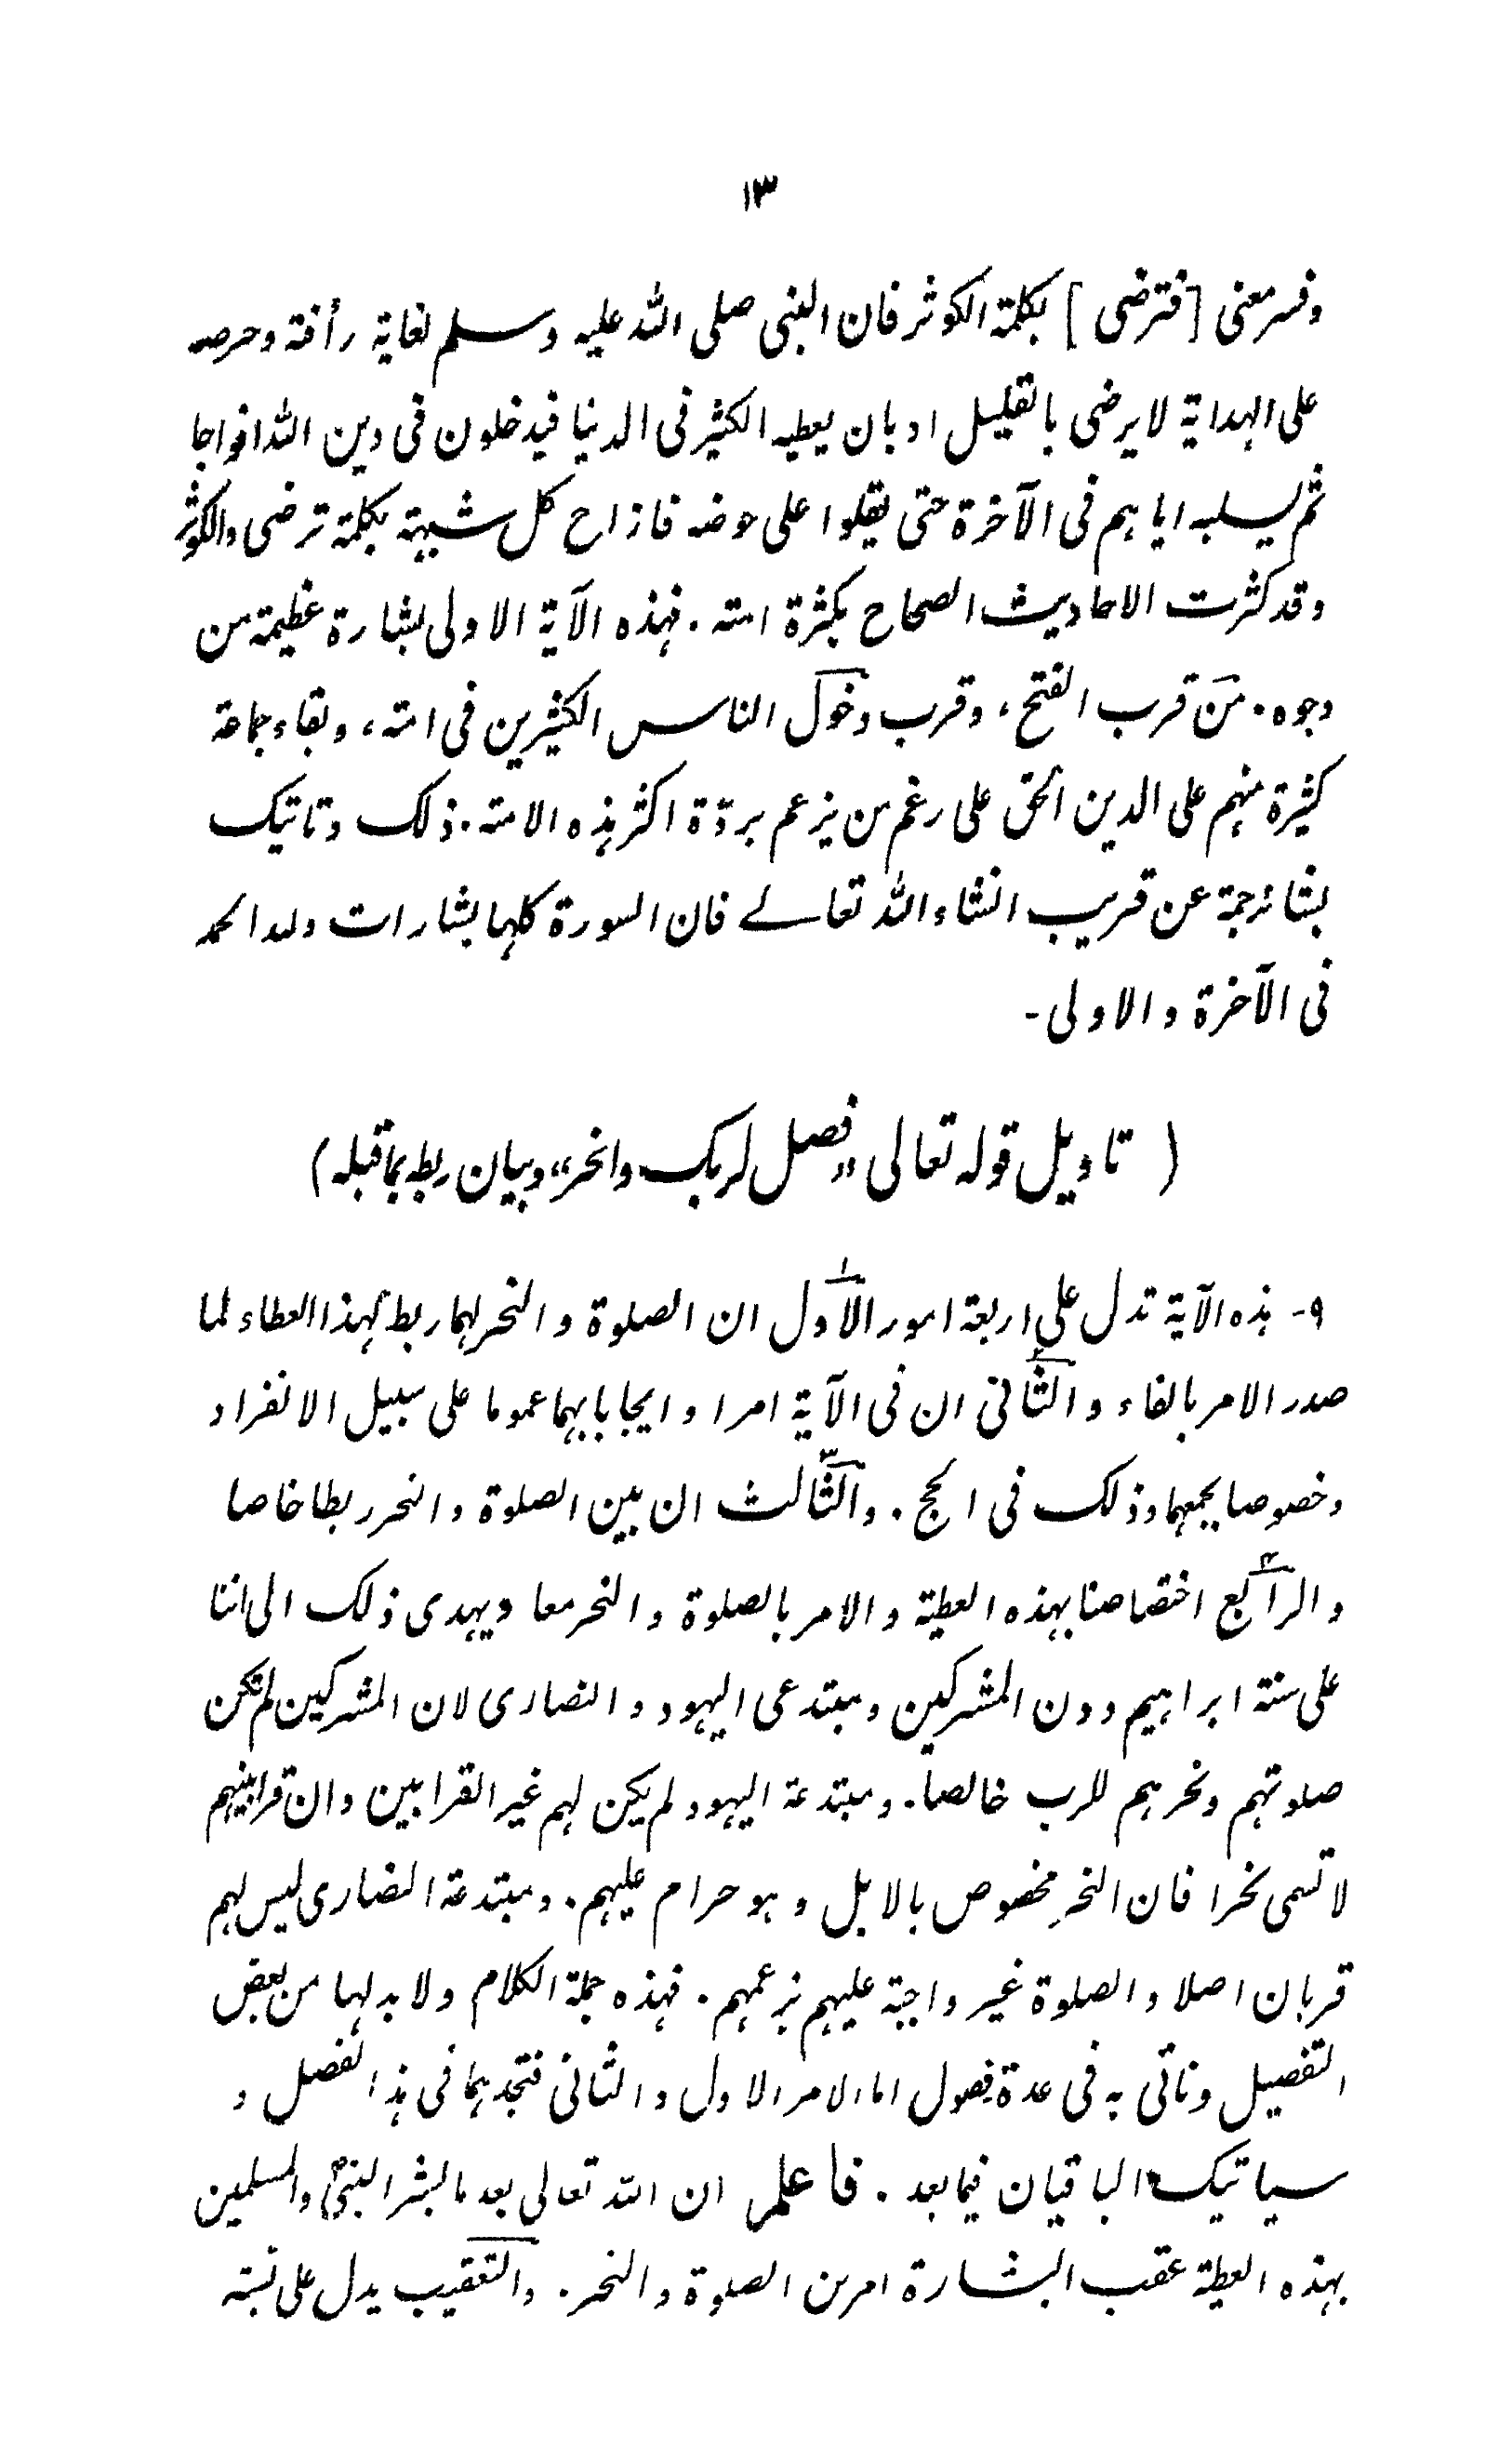 ١٣
وفسر معنى [فترضى] بكلمة الكوثر فان النبى صلى الله عليه وسلم لغاية رأفته وحرصه
على الهداية لا يرضى بالقليل او بان يعطيه الكثير فى الدنيا فيدخلون فى دين الله افواجا
ثم يسلبه اياهم فى الآخرة حتى يقلوا على حوضه فازاح كل شبهة بكلمة ترضى والكوثر
وقد كثرت الاحاديث الصحاح بكثرة امته . فهذه الآية الاولى بشارة عظيمة من
وجوه . من قرب الفتح، وقرب دخول الناس الكثيرين فى امته، وبقاء جماعة
كثيرة منهم على الدين الحق على رغم من يزعم بردّة اكثر هذه الامته . ذلك وتاتيك
بشائر جمة عن قريب انشاء الله تعالے فان السورة كلها بشارات ولله الحمد
فى الآخرة والاولى -
( تاويل قوله تعالى "فصل لربك وانحر" وبيان ربطه بما قبله)
٩- هذه الآية تدل على اربعة امور الاول ان الصلوة والنحر لهما ربط بهذا العطاء لما
صدر الامر بالفاء والثانى ان فى الآية امرا وايجابا بهما عموما على سبيل الانفراد
وخصوصا بجمعهما وذلك فى الحج . والثالث ان بين الصلوة والنحر ربطا خاصا
والرابع اختصاصنا بهذه العطية والامر بالصلوة والنحر معا ويهدى ذلك الى اننا
على سنة ابراهيم دون المشركين ومبتدعى اليهود والنصارى لان المشركين لم تكن
صلوتهم ونحرهم للرب خالصا . ومبتدعة اليهود لم يكن لهم غير القرابين وان قرابينهم
لا تسمى نحرا فان النحر مخصوص بالابل وهو حرام عليهم . ومبتدعة النصارى ليس لهم
قربان اصلا والصلوة غير واجبة عليهم بزعمهم . فهذه جملة الكلام ولا بد لها من بعض
التفصيل ونأتى به فى عدة فصول اما الامر الاول والثانى فتجدهما فى هذا الفصل و
سياتيك الباقيان فيما بعد . فاعلم ان الله تعالى بعد ما بشر النبى والمسلمين
بهذه العطية عقب البشارة امرين الصلوة والنحر . والتعقيب يدل على نسبته